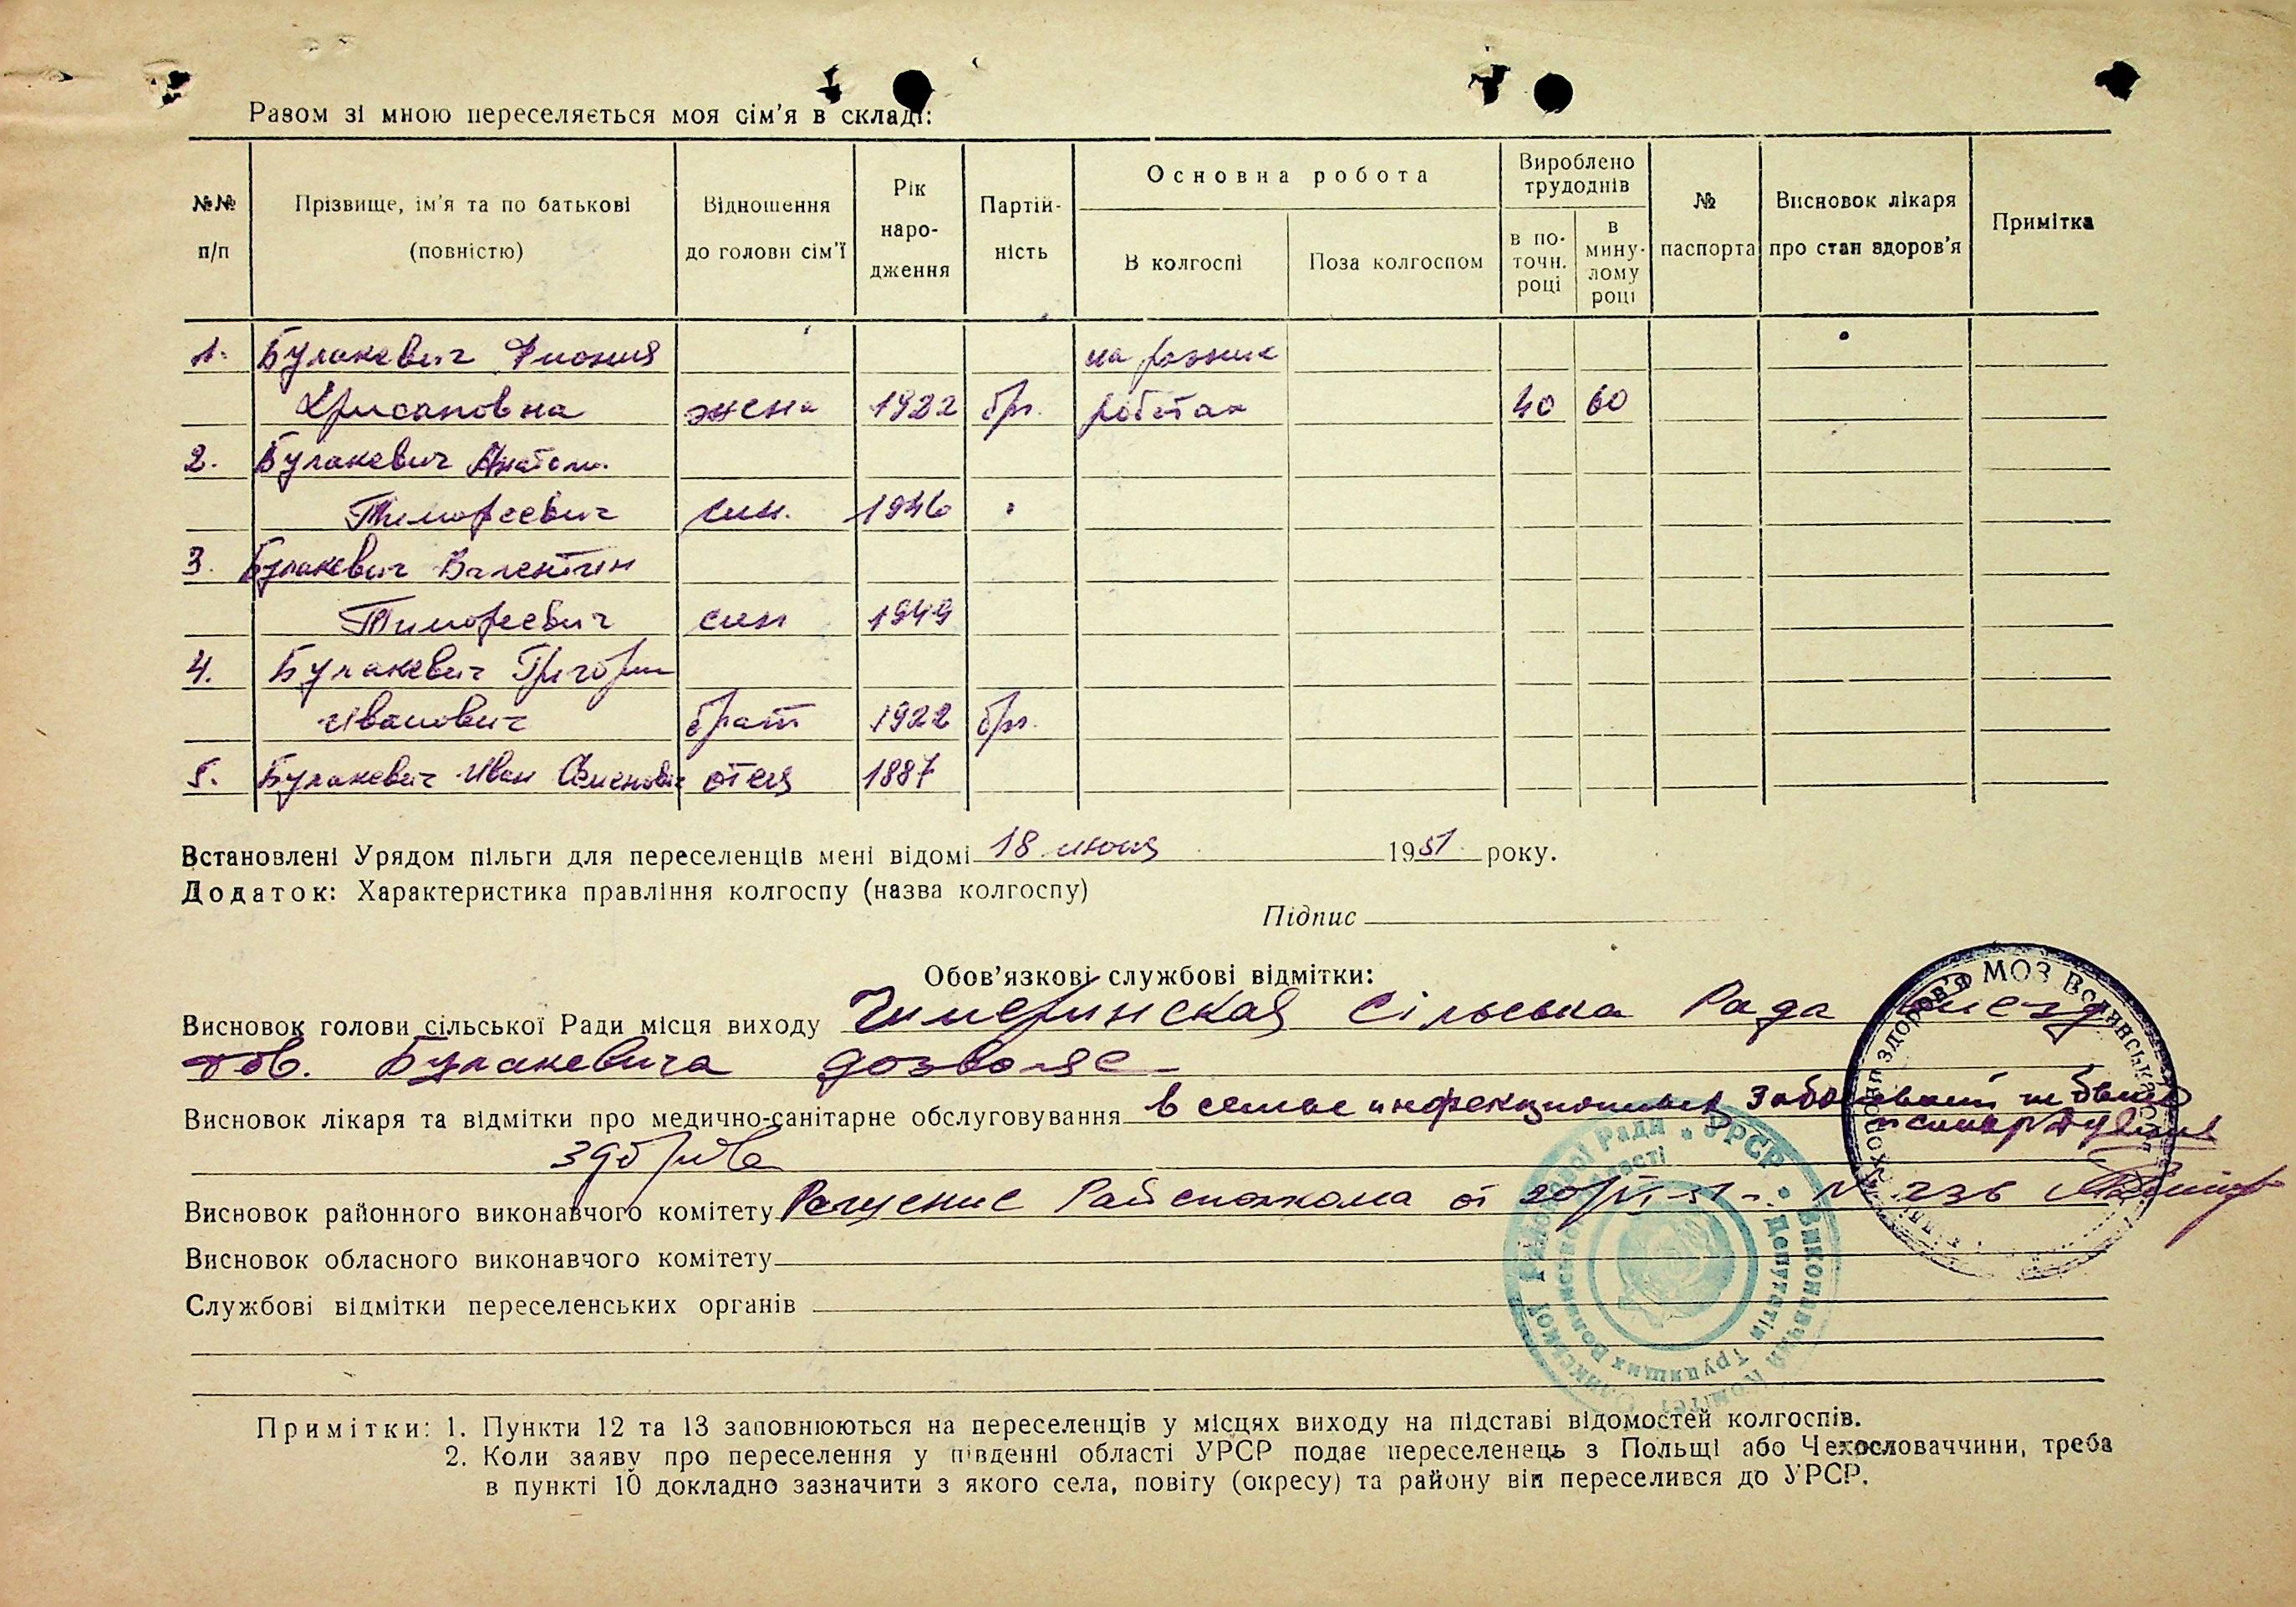 Разом зі мною переселяється моя сім'я в складі:
№№ п/п
Прізвище, ім'я та по батькові (повністю)
Відношення до голови сім'ї
Рік народження
Партійність
Основна робота
В колгоспі
Поза колгоспом
Вироблено трудоднів
в поточн. році
в минулому році
№ паспорта
Висновок лікаря про стан здоров'я
Примітка
1. Булакевич Фиония на разних
Хрисановна жена 1922 бп. роботах 40 60
2. Булакевич Анатоли
Тимофеевич син. 1946
3. Булакевич Валентин
Тимофеевич син 1949
4. Булакевич Григори
Иванович брат 1922 бп.
5. Булакевич Иван Семенович отец 1887
Встановлені Урядом пільги для переселенців мені відомі 18 июня 1951 року.
Додаток: Характеристика правління колгоспу (назва колгоспу)
Підпис
Обов'язкові службові відмітки:
Висновок голови сільської Ради місця виходу Чимеринская Сільська Рада виезд
тов. Булакевича дозволяє
Висновок лікаря та відмітки про медично-санітарне обслуговування в семье инфекционных заболеваний не было
здорова
Висновок районного виконавчого комітету Рещение Райсполкома от 20/VI-51- № 236
Висновок обласного виконавчого комітету
Службові відмітки переселенських органів
Примітки: 1. Пункти 12 та 13 заповнюються на переселенців у місцях виходу на підставі відомостей колгоспів.
2. Коли заяву про переселення у південні області УРСР подає переселенець з Польщі або Чехословаччини, треба
в пункті 10 докладно зазначити з якого села, повіту (окресу) та району він переселився до УРСР.